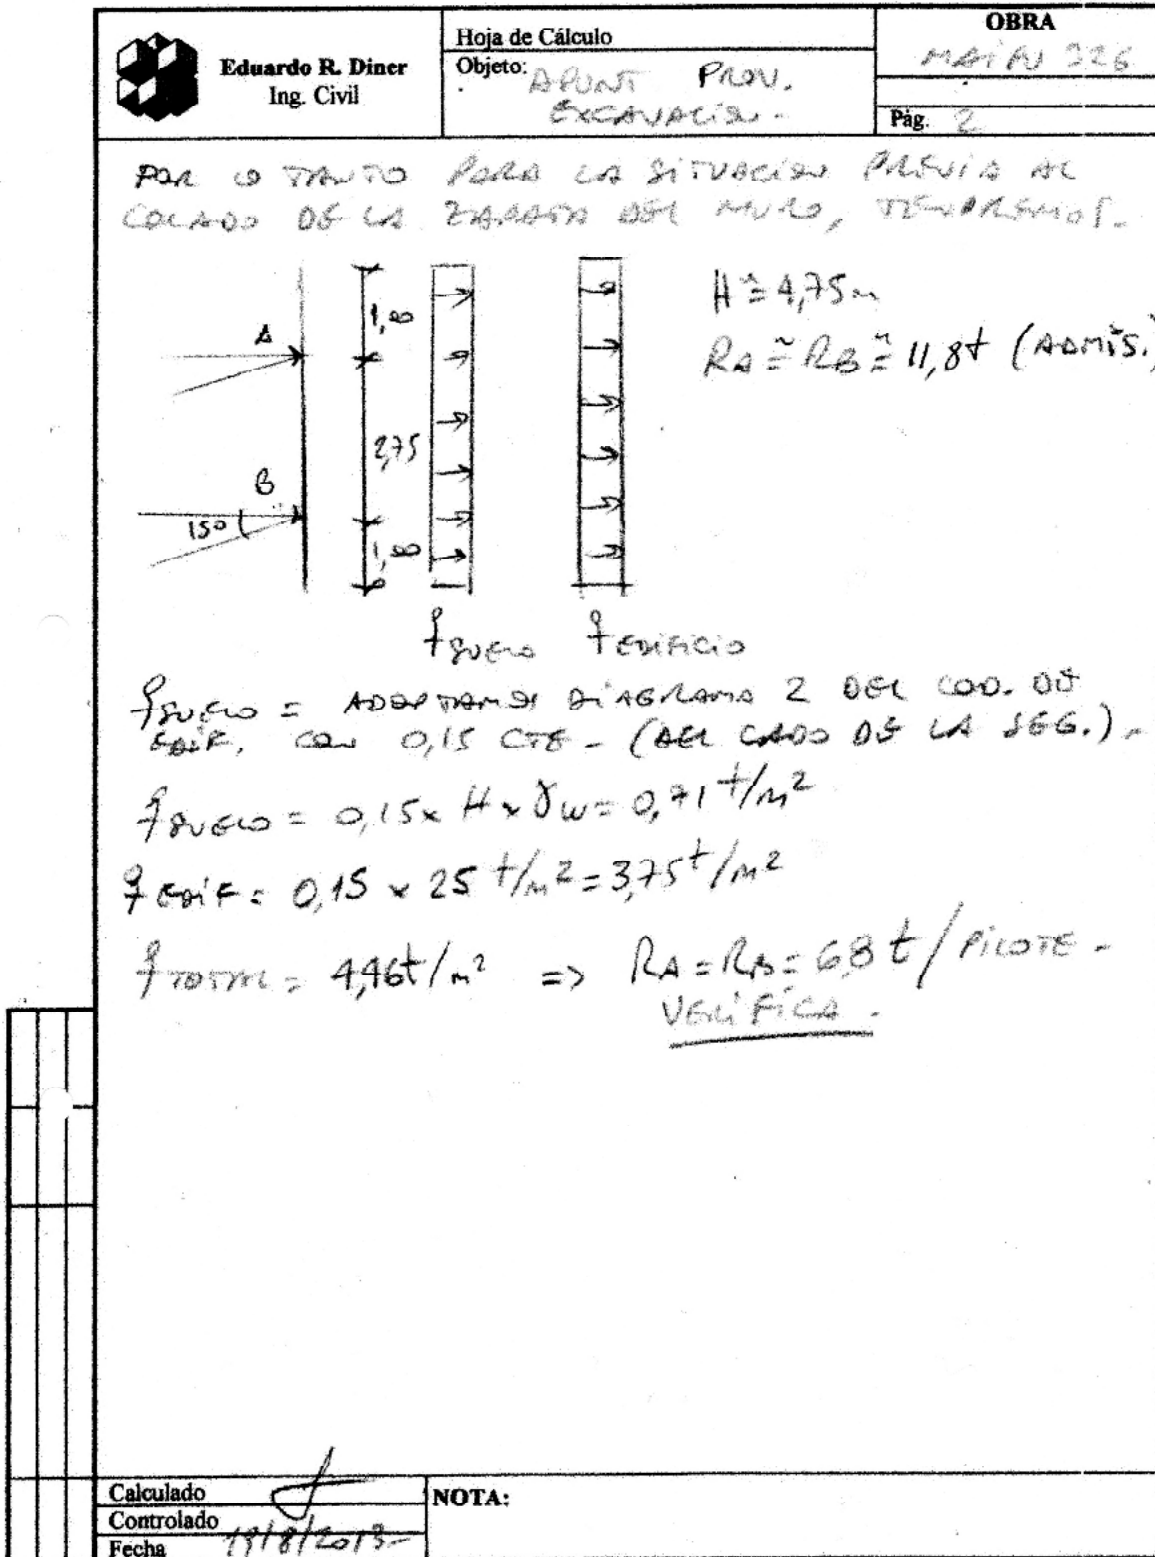 Eduardo R. Diner
Ing. Civil
Hoja de Cálculo
Objeto: APUNT PROV.
EXCAVACIÓN.-
OBRA
MAIPU 326
Pág. 2
POR LO TANTO PARA LA SITUACION PREVIA AL
COLADO DE LA ZAPATA DEL MURO, TENDREMOS.-
A
B
15°
1,00
2,75
1,00
q SUELO q EDIFICIO
H ≅ 4,75 m
RA ≅ RB ≅ 11,8t (ADMIS.)
q SUELO = ADOPTAMOS DIAGRAMA 2 DEL COD. DE
EDIF. CON 0,15 CTE - (DEL LADO DE LA SEG.).-
q SUELO = 0,15 x H x γw = 0,71 t/m²
q EDIF = 0,15 x 25 t/m² = 3,75 t/m²
q TOTAL = 4,46 t/m² => RA = RB = 6,8 t/PILOTE -
VERIFICA.
Calculado
Controlado
Fecha 19/8/2013-
NOTA: